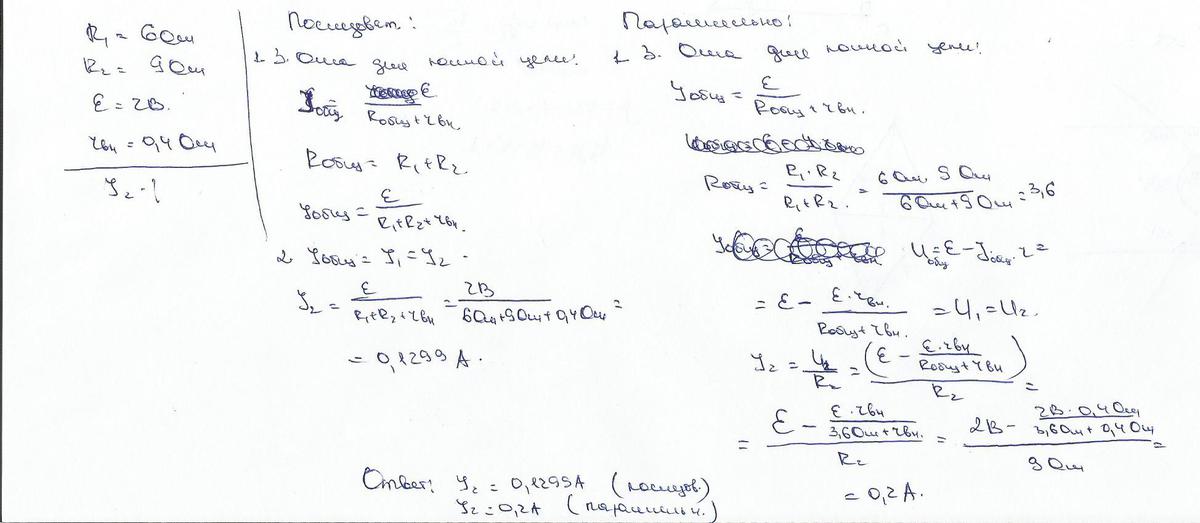 R₁ = 6Ом
R₂ = 9Ом
ε = 2В.
rвн = 0,4Ом
I₂ - ?
Последоват.:
1. З. Ома для полной цепи:
Iобщ = ε / (Rобщ + rвн.)
Rобщ = R₁ + R₂
Iобщ = ε / (R₁ + R₂ + rвн.)
2. Iобщ = I₁ = I₂.
I₂ = ε / (R₁ + R₂ + rвн) = 2В / (6Ом + 9Ом + 0,4Ом) =
= 0,1299 А.
Параллельно:
1. З. Ома для полной цепи:
Iобщ = ε / (Rобщ + rвн.)
Rобщ = R₁·R₂ / (R₁ + R₂.) = 6Ом · 9Ом / (6Ом + 9Ом) = 3,6
Uобщ = ε – Iобщ · r =
= ε – ε·rвн. / (Rобщ + rвн.) = U₁ = U₂.
I₂ = U₂ / R₂ = (ε – ε·rвн / (Rобщ + rвн)) / R₂ =
= (ε – ε·rвн / (3,6Ом + rвн.)) / R₂ = (2В – 2В·0,4Ом / (3,6Ом + 0,4Ом)) / 9Ом =
= 0,2 А.
Ответ: I₂ = 0,1299А (последов.)
I₂ = 0,2А (параллельн.)